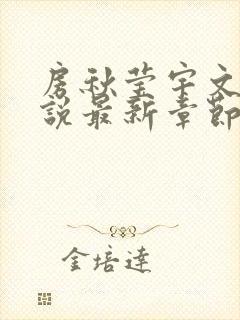 房秋莹宇文
说最新章节
金培达